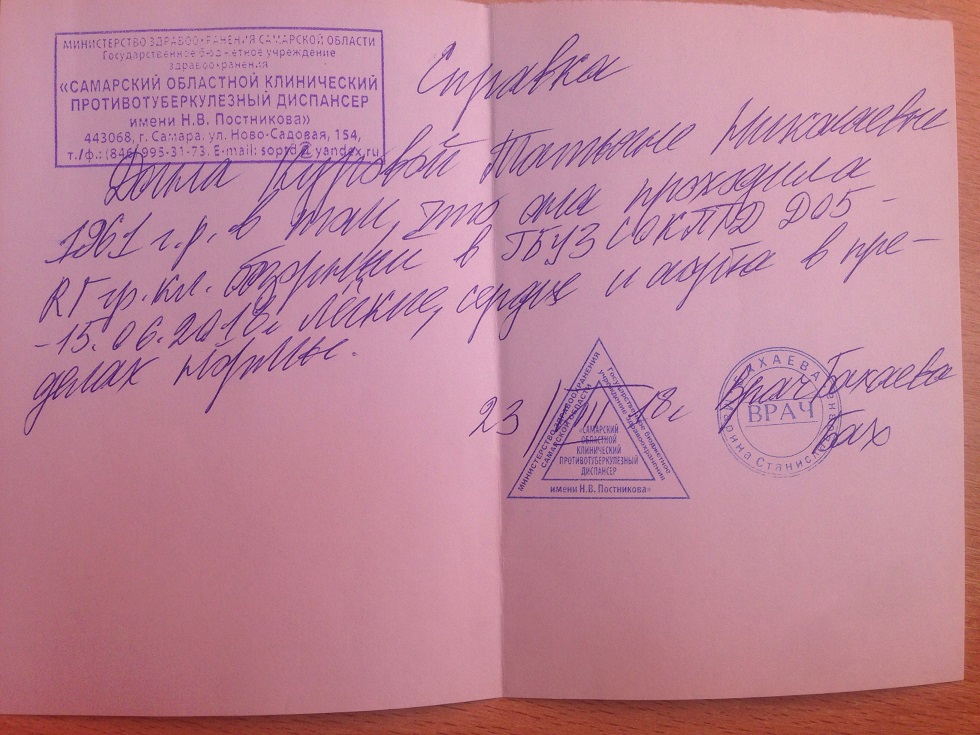 МИНИСТЕРСТВО ЗДРАВООХРАНЕНИЯ САМАРСКОЙ ОБЛАСТИ
Государственное бюджетное учреждение
здравоохранения
«САМАРСКИЙ ОБЛАСТНОЙ КЛИНИЧЕСКИЙ
ПРОТИВОТУБЕРКУЛЕЗНЫЙ ДИСПАНСЕР
имени Н.В. Постникова»
443068, г. Самара, ул. Ново-Садовая, 154,
т./ф.: (846) 995-31-73. E-mail: soptd@yandex.ru
Справка
Дана Татьяне Николаевне
1961 г.р. в том, что она проходила
RГ гр. кл. в ГБУЗ СОКПТД
-15.06.2018г лёгкие, сердце и аорта в пре-
делах нормы.
23 18г
МИНИСТЕРСТВО ЗДРАВООХРАНЕНИЯ
САМАРСКОЙ ОБЛАСТИ
Государственное бюджетное
учреждение здравоохранения
«САМАРСКИЙ
ОБЛАСТНОЙ
КЛИНИЧЕСКИЙ
ПРОТИВОТУБЕРКУЛЕЗНЫЙ
ДИСПАНСЕР
имени Н.В. Постникова»
Врач
ВРАЧ